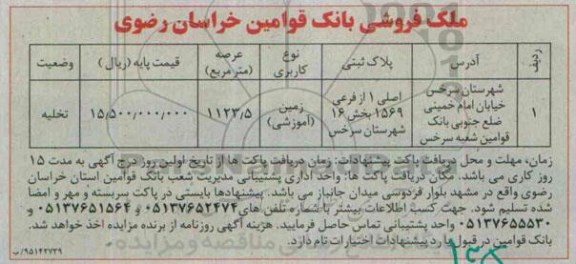 ملک فروشی بانک قوامین خراسان رضوی
ردیف آدرس پلاک ثبتی نوع کاربری عرصه (متر مربع) قیمت پایه (ریال) وضعیت
۱ شهرستان سرخس خیابان امام خمینی ضلع جنوبی بانک قوامین شعبه سرخس اصلی ۱ از فرعی ۱۵۶۹ بخش ۱۶ شهرستان سرخس زمین (آموزشی) ۱۱۲۳/۵ ۱۵/۵۰۰/۰۰۰/۰۰۰ تخلیه
زمان، مهلت و محل دریافت پاکت پیشنهادات: زمان دریافت پاکت ها از تاریخ اولین روز درج آگهی به مدت ۱۵
روز کاری می باشد. مکان دریافت پاکت ها: واحد اداری پشتیبانی مدیریت شعب بانک قوامین استان خراسان
رضوی واقع در مشهد بلوار فردوسی میدان جانباز می باشد. پیشنهادها بایستی در پاکت سربسته و مهر و امضا
شده تسلیم شود. جهت کسب اطلاعات بیشتر با شماره تلفن های ۰۵۱۳۷۶۵۲۴۷۴ و ۰۵۱۳۷۶۵۱۵۶۴ و
۰۵۱۳۷۶۵۵۵۳۰ واحد پشتیبانی تماس حاصل فرمایید. هزینه آگهی روزنامه از برنده مزایده اخذ خواهد شد.
بانک قوامین در قبول یا رد پیشنهادات اختیارات تام دارد.
۹۵۱۴۲۷۲۹/ب